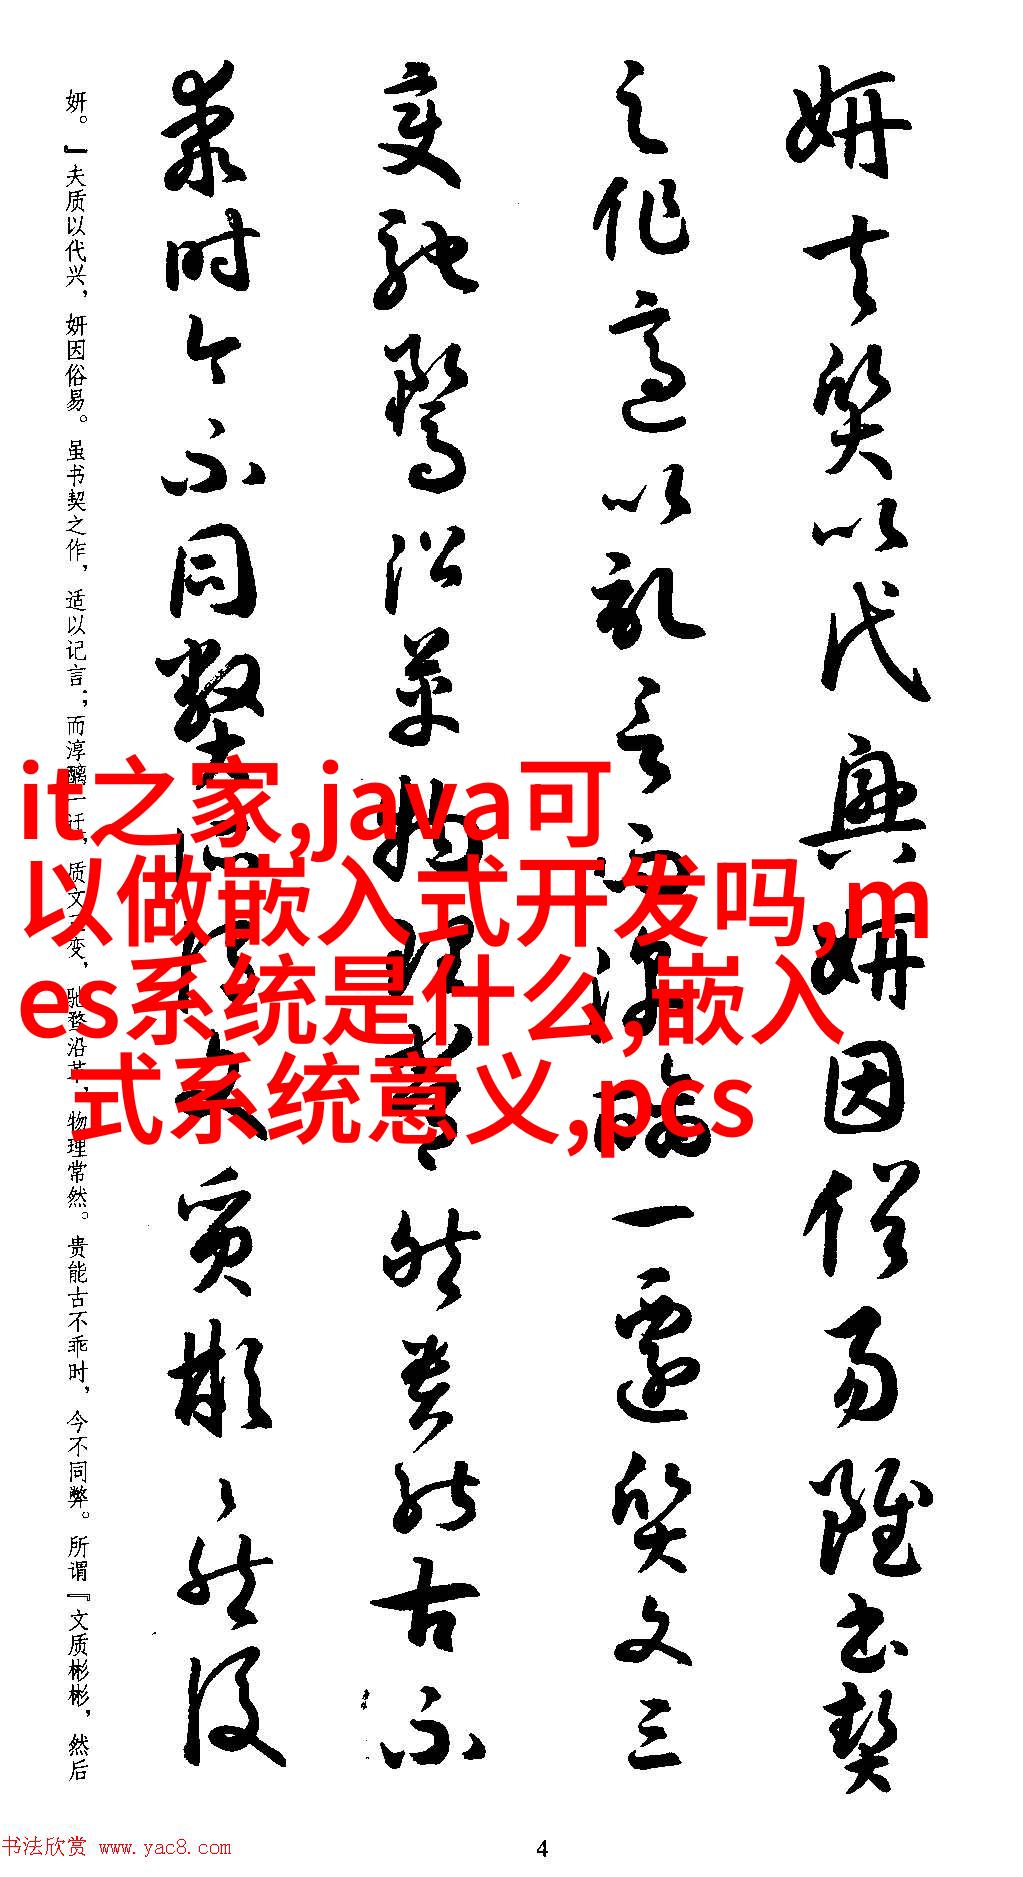 妍夫質以代興妍因俗易雖書契
之作適以記言而淳醨一遷質文三
變馳騖沿革物理常然貴能古不
乖時今不同弊所謂文質彬々然後
妍。』夫质以代兴，妍因俗易。虽书契之作，适以记言；而淳醨一迁，质文三变，驰骛沿革，物理常然。贵能古不乖时，今不同弊。所谓『文质彬彬，然后
it之家,java可
以做嵌入式开发吗,m
es系统是什么,嵌入
式系统意义,pcs
书法欣赏 www.yac8.com
4